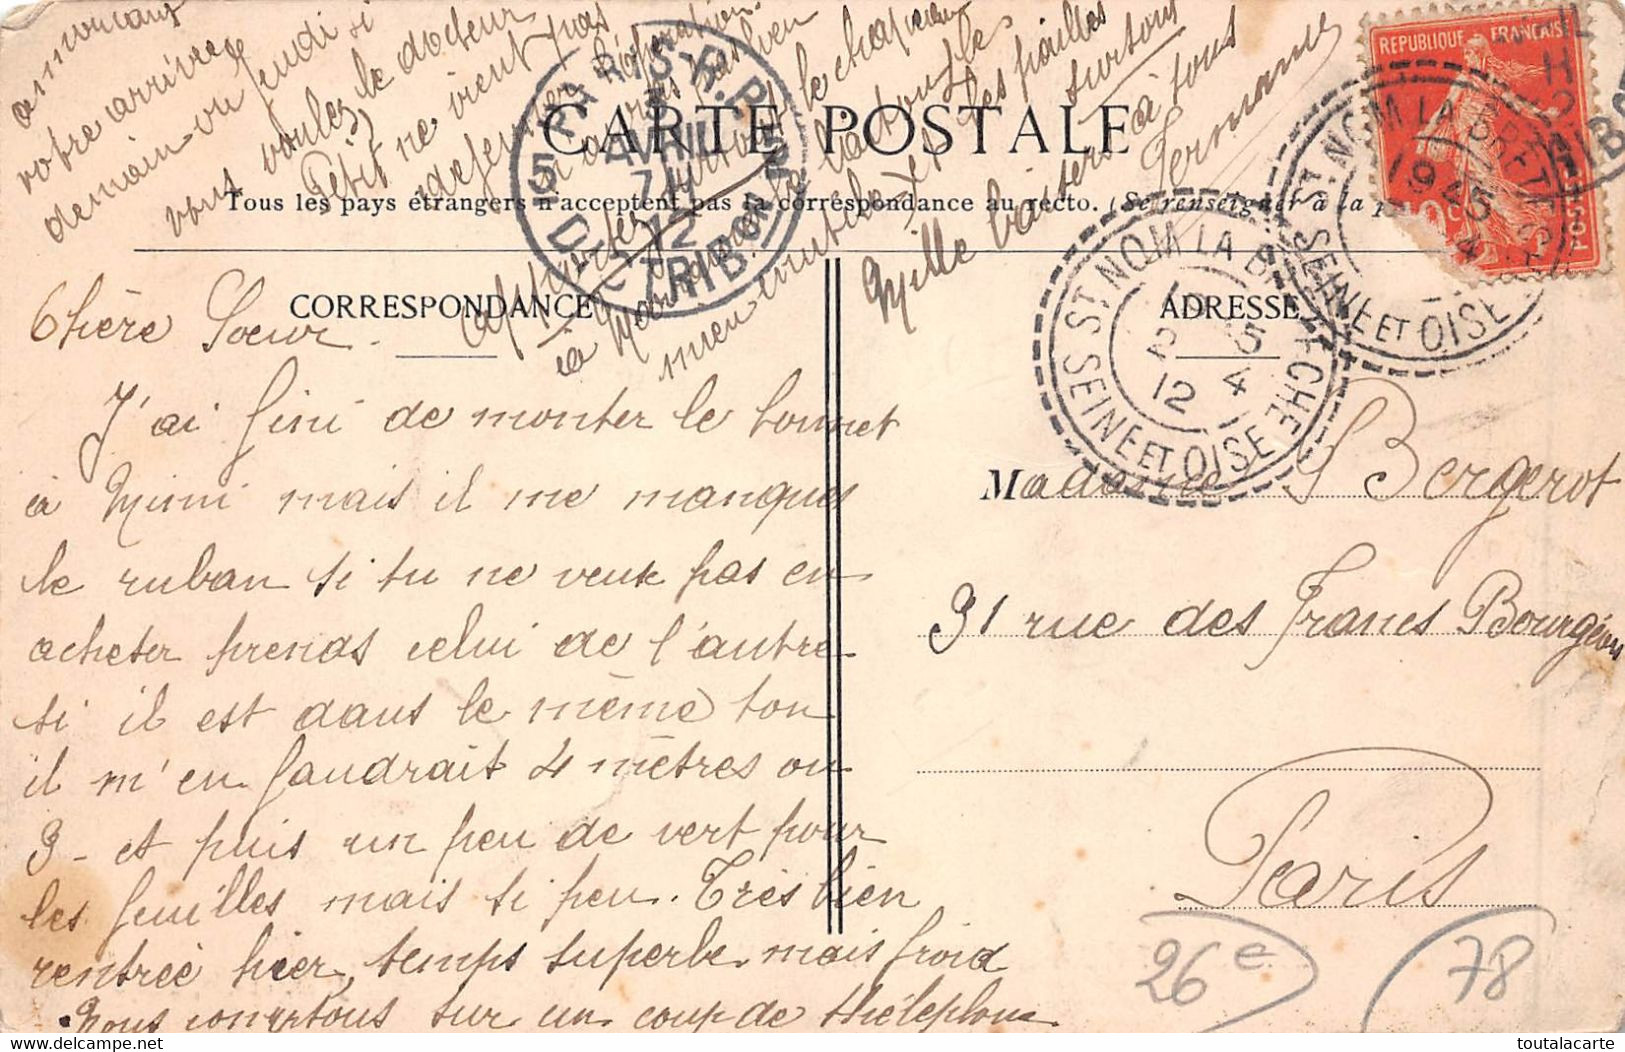 CARTE POSTALE
Tous les pays étrangers n'acceptent pas la correspondance au recto. (Se renseigner à la
CORRESPONDANCE
ADRESSE
Chère Soeur.
J'ai fini de monter le bonnet
à Mimi mais il me manques
le ruban si tu ne veux pas en
acheter prends celui de l'autre
si il est dans le même ton
il m'en faudrait 4 mètres ou
3 - et puis un peu de vert pour
les feuilles mais si peu. Très bien
rentrée hier, temps superbe mais froid
Nous comptons sur un coup de théléphone
annonçant
votre arrivée
demain ou jeudi si
vous voulez, le docteur
Petit ne vient pas
apporter
surtout le chapeau
la
de
et les pailles
surtout
Mille baisers à tous
Germaine
Madame P Bergerot
31 rue des Francs Bourgeois
Paris
REPUBLIQUE FRANÇAISE
10c
PARIS R.P.
5
AVRIL
7
12
DISTRIBON
ST NOM LA BRETECHE
19 45
4
SEINE ET OISE
ST NOM LA BRETECHE
12 4
SEINE ET OISE
26 e
78
toutalacarte